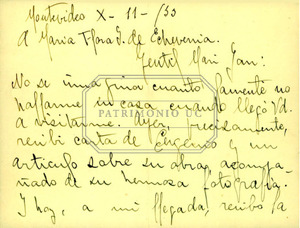 Montevideo X - 11 - /33
A Maria Flora Y. de Echeverria.
Gentil Mari Yan:
No se imagina cuanto lamento no
hallarme in casa cuando llegó Vd.
a visitarme. Ayer, precisamente,
recibi carta de Eugenio y un
articulo sobre su obra, acompa-
ñado de su hermosa fotografia.
Y hoy, a mi llegada, recibo la
PATRIMONIO UC